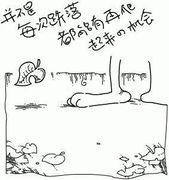 并不是
每次跌落
都能有再爬
起来の机会